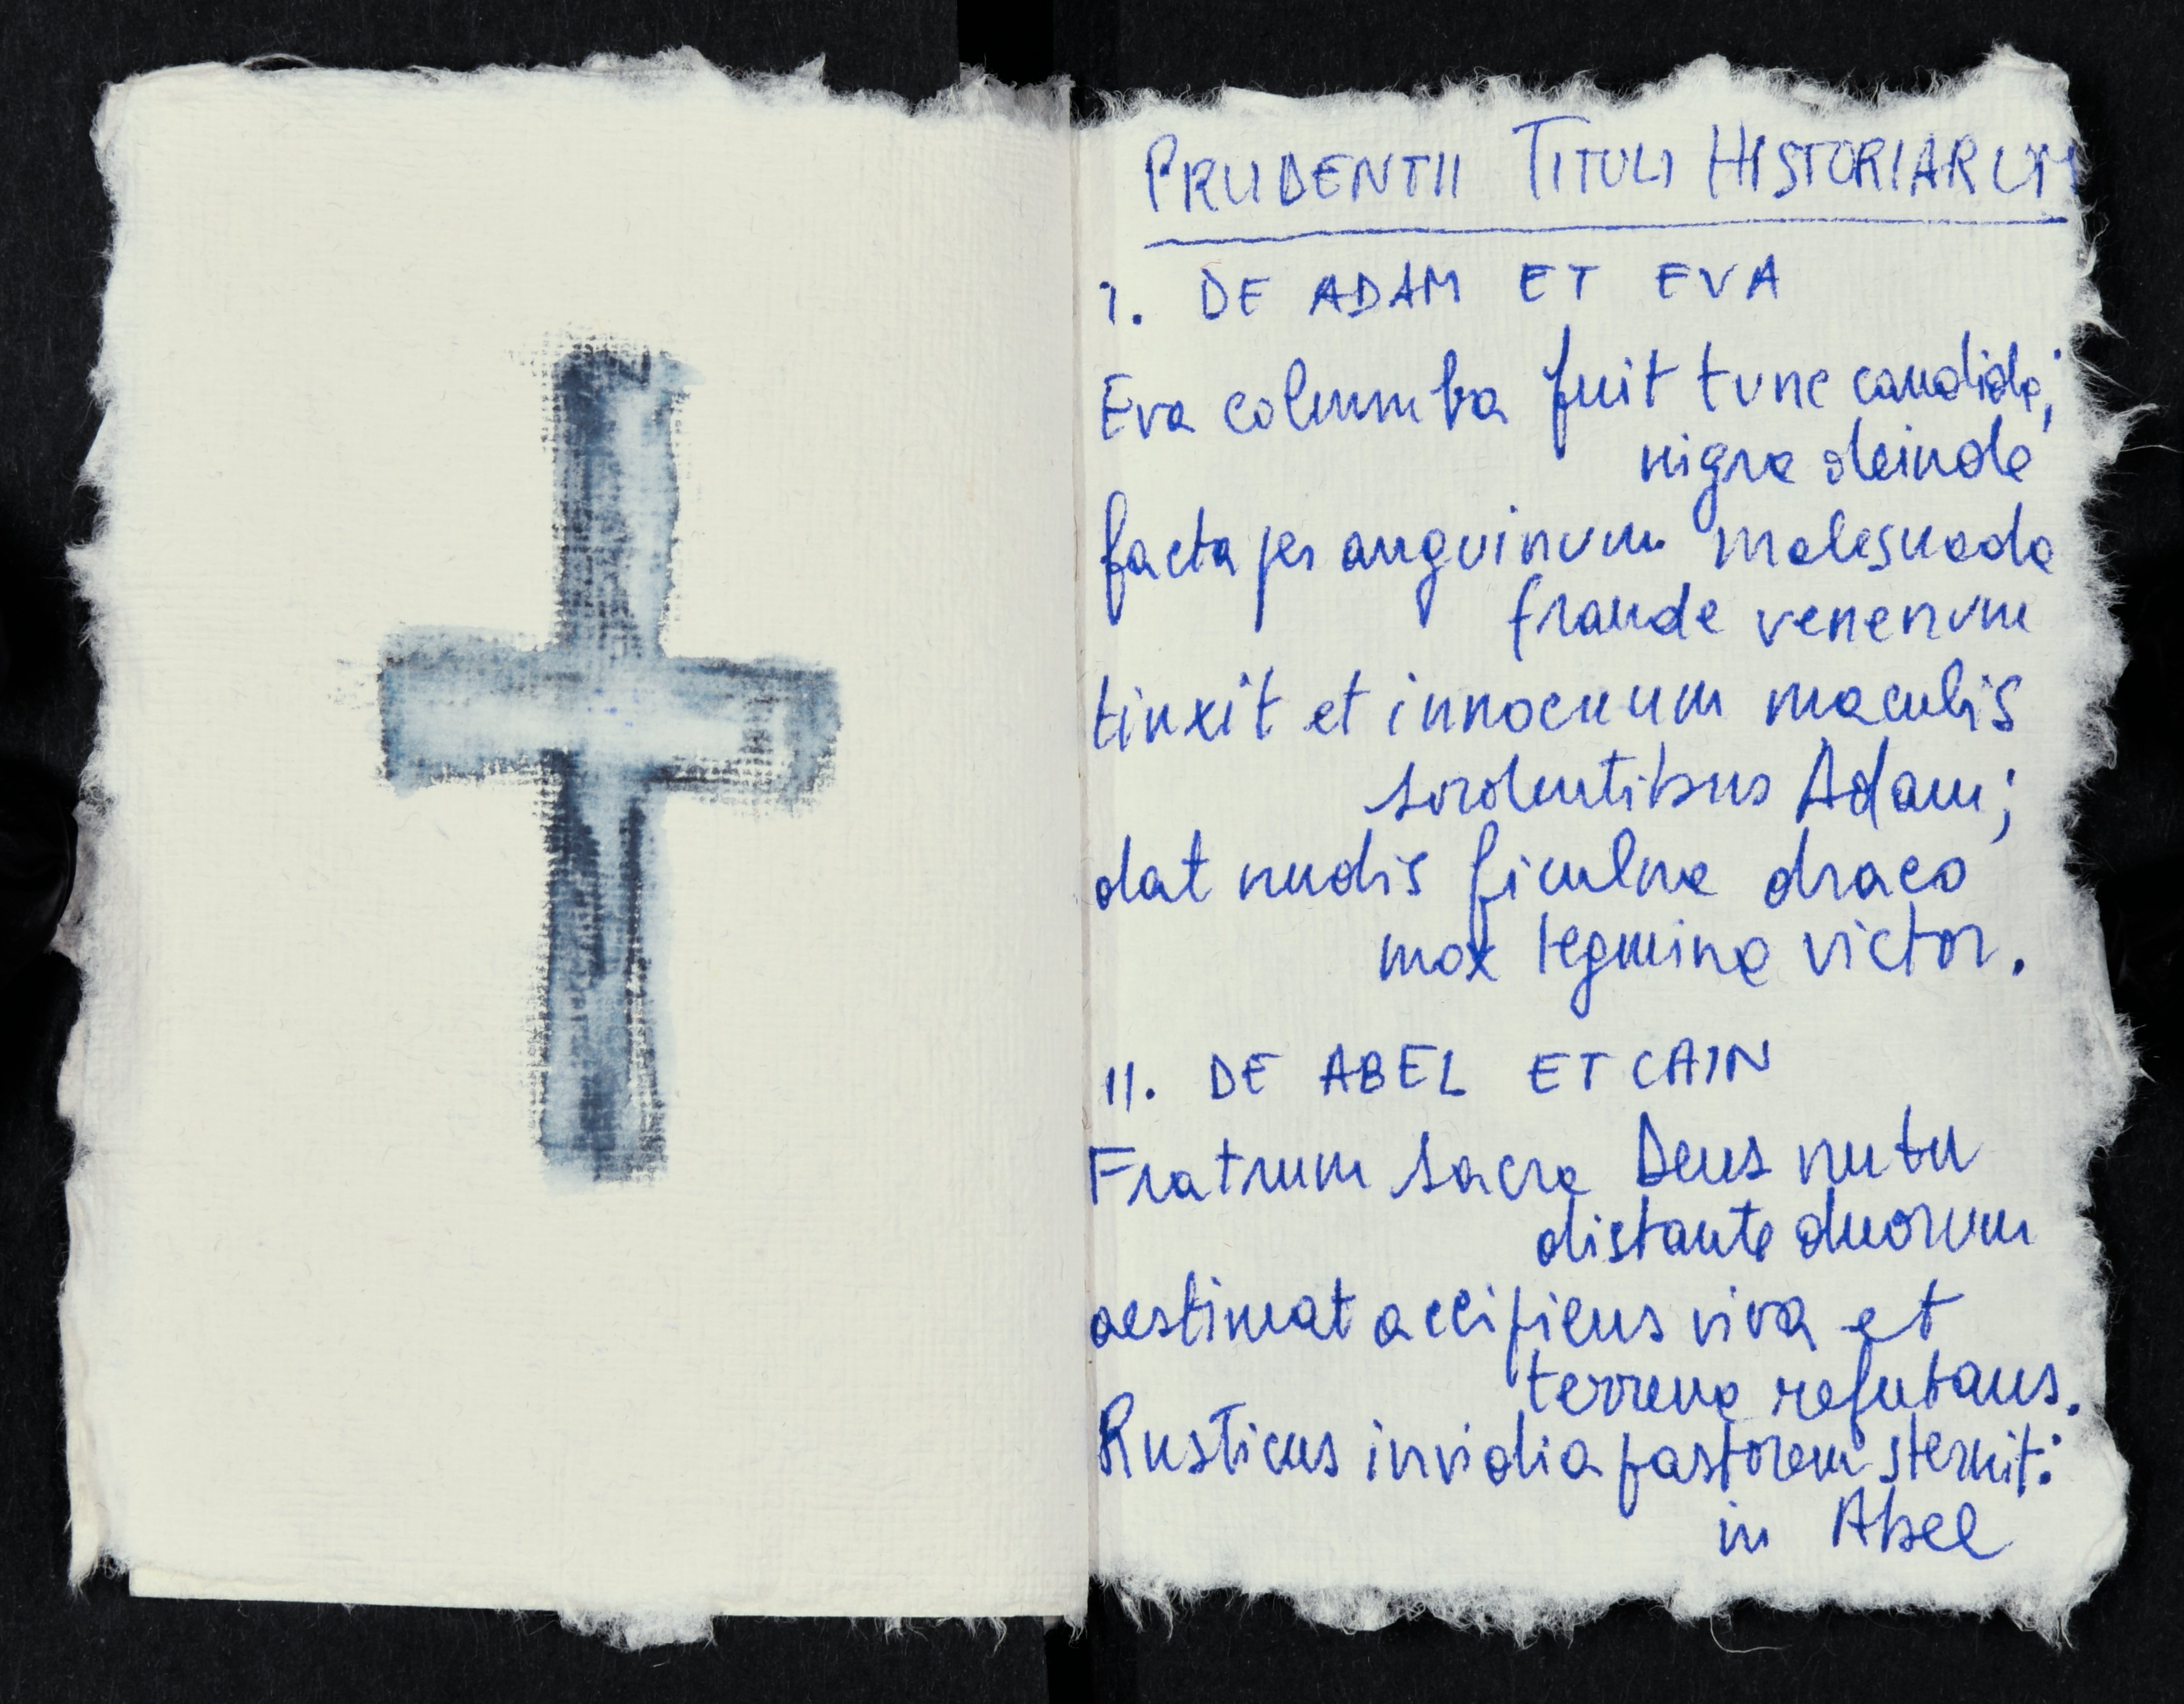 PRUDENTII TITULI HISTORIARUM
I. DE ADAM ET EVA
Eva columba fuit tunc candida;
nigra deinde
facta per anguinum malesuada
fraude venenum
tinxit et innocuum maculis
sordentibus Adam;
dat nudis ficulna draco
mox tegmina victor.
II. DE ABEL ET CAIN
Fratrum sacra Deus nutu
distante duorum
aestimat accipiens viva et
terrena refutans.
Rusticus invidia pastorem sternit:
in Abel